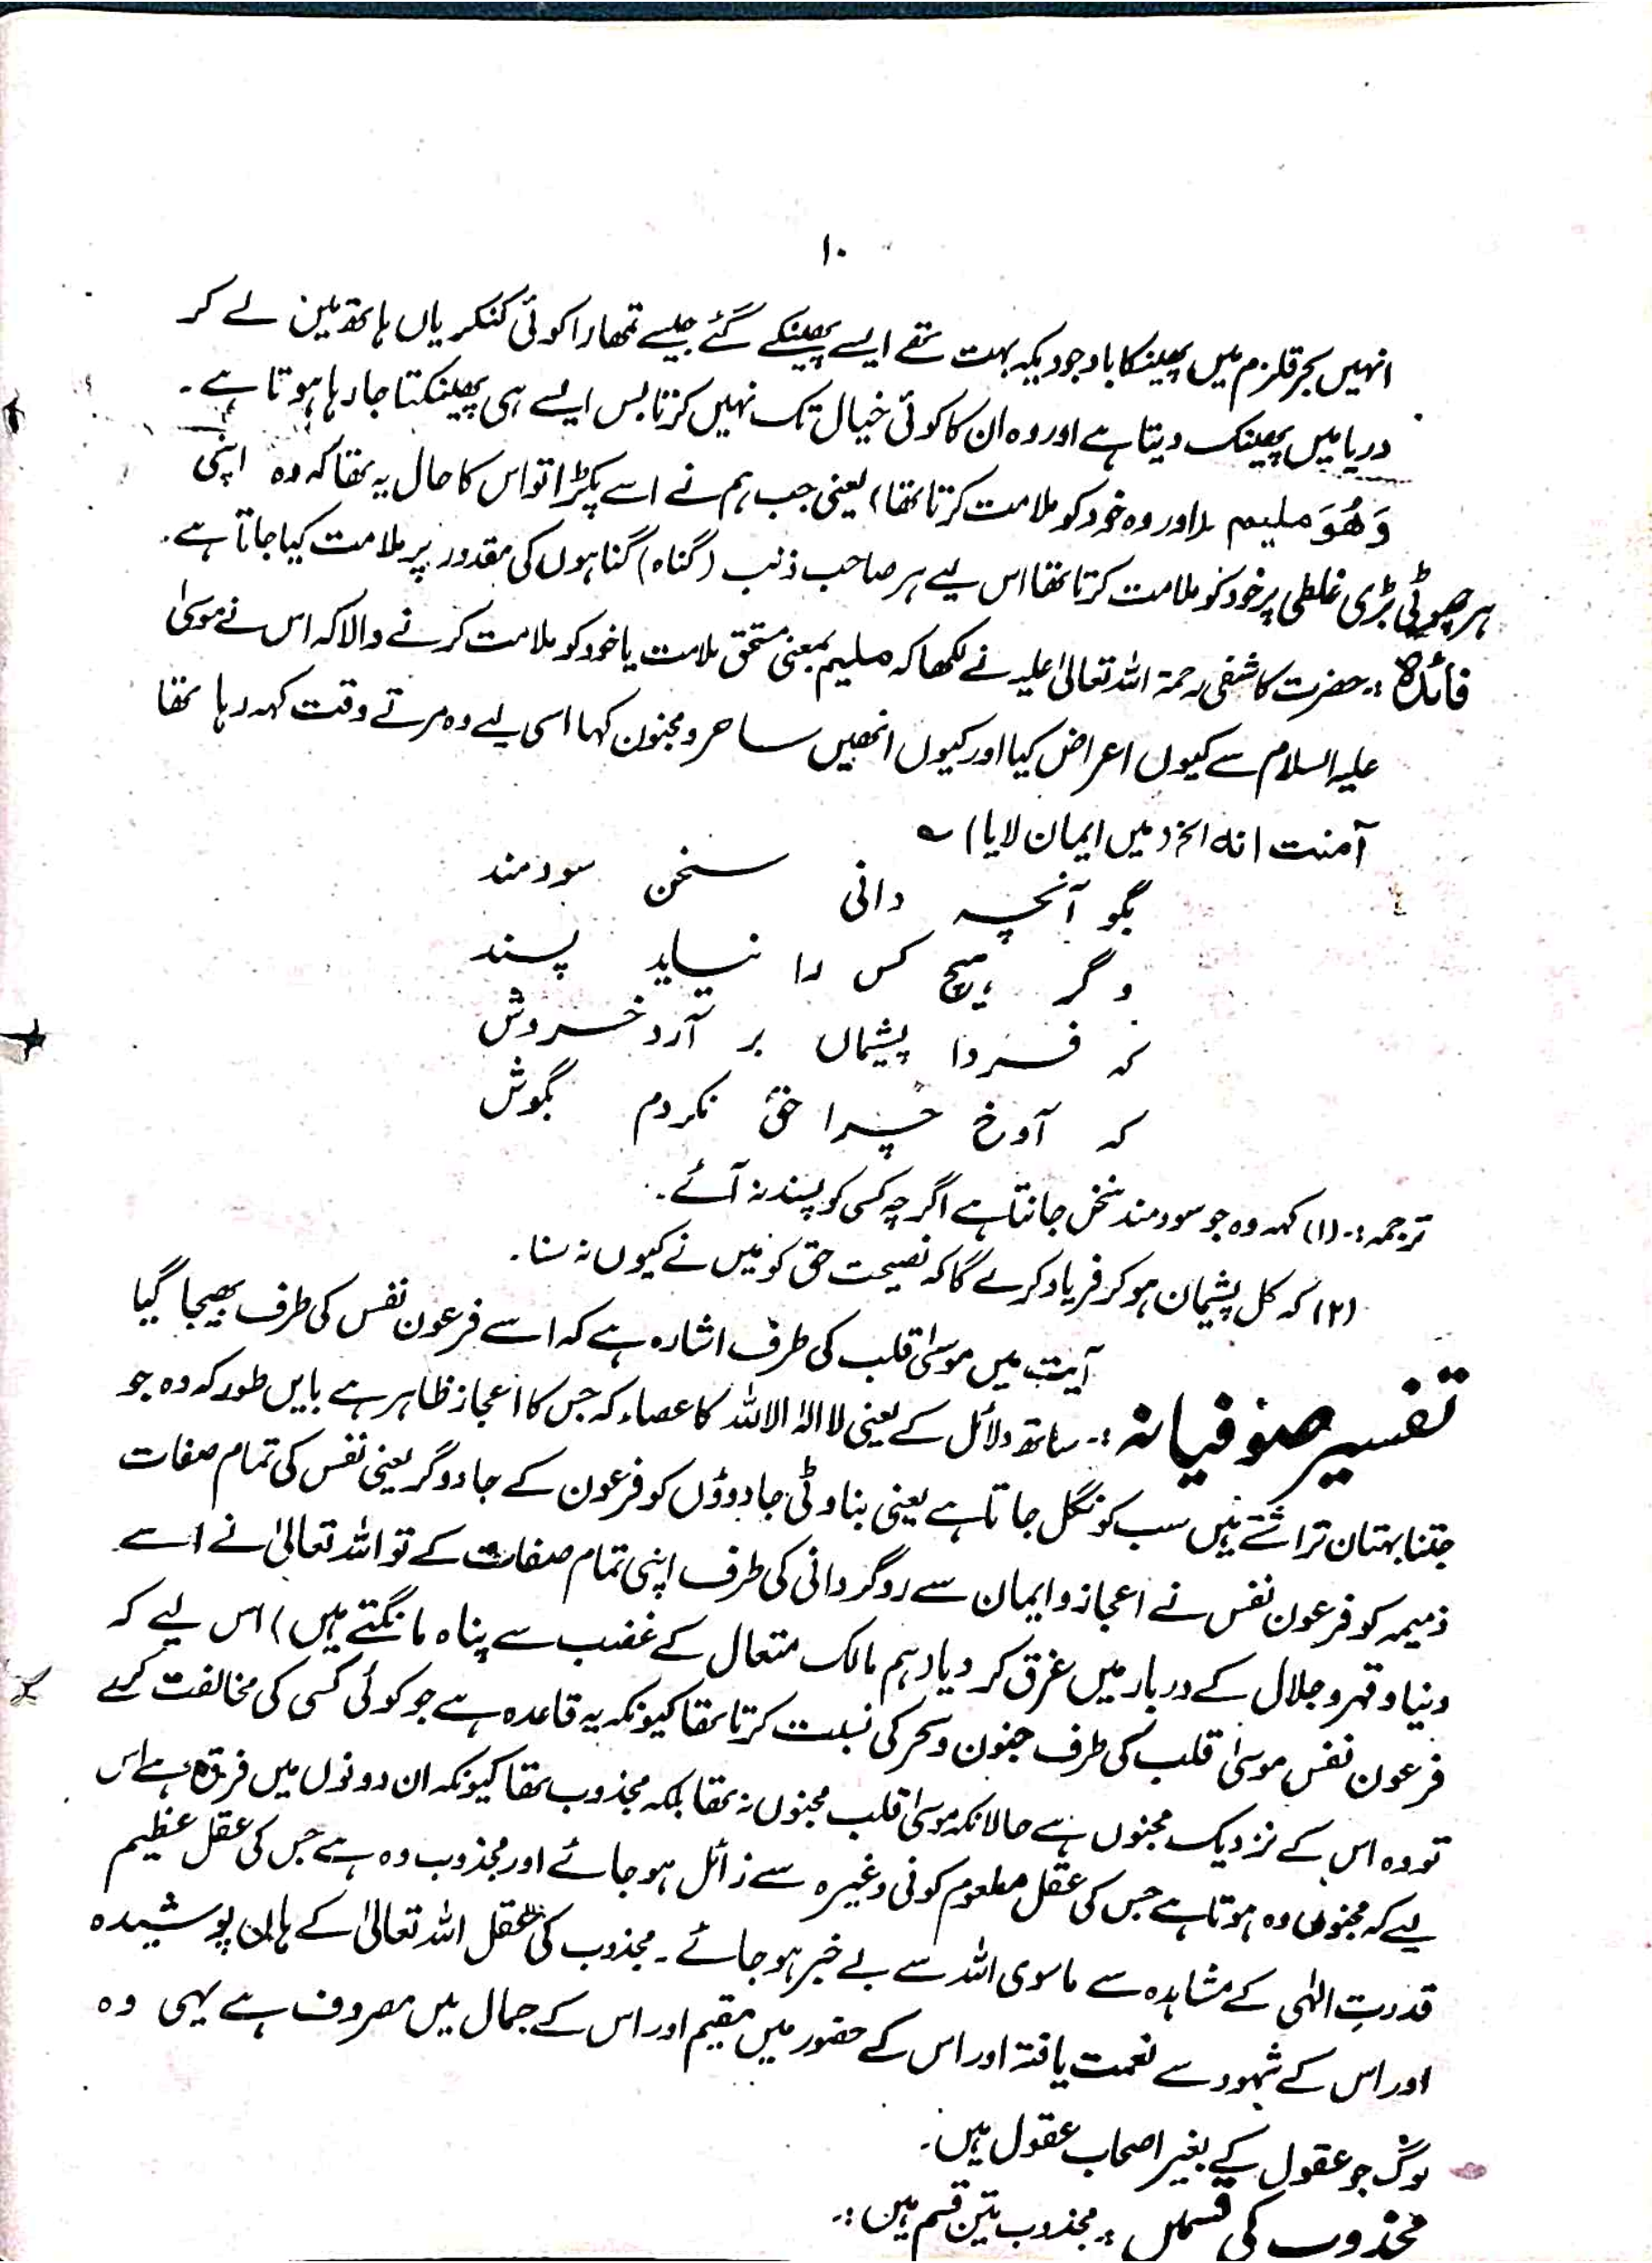 ۱۰
انہیں بحر قلزم میں پھینکا باوجودیکہ بہت تھے ایسے پھینکے گئے جیسے تمھارا کوئی کنکریاں ہاتھ میں لے کر
دریا میں پھینک دیتا ہے اور وہ ان کا کوئی خیال تک نہیں کرتا بس ایسے ہی پھینکتا جا رہا ہوتا ہے۔
وَهُوَ ملیم (اور وہ خود کو ملامت کرتا تھا) یعنی جب ہم نے اسے پکڑا تو اس کا حال یہ تھا کہ وہ اپنی
ہر چھوٹی بڑی غلطی پر خود کو ملامت کرتا تھا اس لیے ہر صاحب ذنب (گناہ) گناہوں کی مقدور پر ملامت کیا جاتا ہے۔
فائدہ :۔ حضرت کاشفی رحمۃ اللہ تعالیٰ علیہ نے لکھا کہ ملیم بمعنی مستحق ملامت یا خود کو ملامت کرنے والا کہ اس نے موسیٰ
علیہ السلام سے کیوں اعراض کیا اور کیوں انھیں ساحر و مجنون کہا اسی لیے وہ مرتے وقت کہہ رہا تھا
آمنت انه الخ (میں ایمان لایا) ؎
بگو آنچہ دانی سخن سودمند
وگر ہیچ کس را نیاید پسند
کہ فردا پشیماں بر آرد خروش
کہ آوخ چرا حق نکردم بگوش
ترجمہ :۔ (۱) کہہ وہ جو سودمند سخن جانتا ہے اگرچہ کسی کو پسند نہ آئے۔
(۲) کہ کل پشیمان ہو کر فریاد کرے گا کہ نصیحت حق کو میں نے کیوں نہ سنا۔
آیت میں موسیٰ قلب کی طرف اشارہ ہے کہ اسے فرعون نفس کی طرف بھیجا گیا
تفسیر صوفیانہ :۔ ساتھ دلائل کے یعنی لا الہ الا اللہ کا عصاء کہ جس کا اعجاز ظاہر ہے بایں طور کہ وہ جو
جتنا بہتان تراشتے ہیں سب کو نگل جاتا ہے یعنی بناوٹی جادوؤں کو فرعون کے جادوگر یعنی نفس کی تمام صفات
ذمیمہ کو فرعون نفس نے اعجاز و ایمان سے روگردانی کی طرف اپنی تمام صفات کے تو اللہ تعالیٰ نے اسے
دنیا و قہر و جلال کے دربار میں غرق کر دیا (ہم مالک متعال کے غضب سے پناہ مانگتے ہیں) اس لیے کہ
فرعون نفس موسیٰ قلب کی طرف جنون و سحر کی نسبت کرتا تھا کیونکہ یہ قاعدہ ہے جو کوئی کسی کی مخالفت کرے
تو وہ اس کے نزدیک مجنوں ہے حالانکہ موسیٰ قلب مجنوں نہ تھا بلکہ مجذوب تھا کیونکہ ان دونوں میں فرق ہے اس
لیے کہ مجنوں وہ ہوتا ہے جس کی عقل مطعوم کونی وغیرہ سے زائل ہو جائے اور مجذوب وہ ہے جس کی عقل عظیم
قدرتِ الٰہی کے مشاہدہ سے ماسوی اللہ سے بے خبر ہو جائے۔ مجذوب کی عقل اللہ تعالیٰ کے ہاں پوشیدہ
اور اس کے شہود سے نعمت یافتہ اور اس کے حضور میں مقیم اور اس کے جمال میں مصروف ہے یہی وہ
لوگ جو عقول کے بغیر اصحاب عقول ہیں۔
مجذوب کی قسمیں :۔ مجذوب تین قسم ہیں :۔